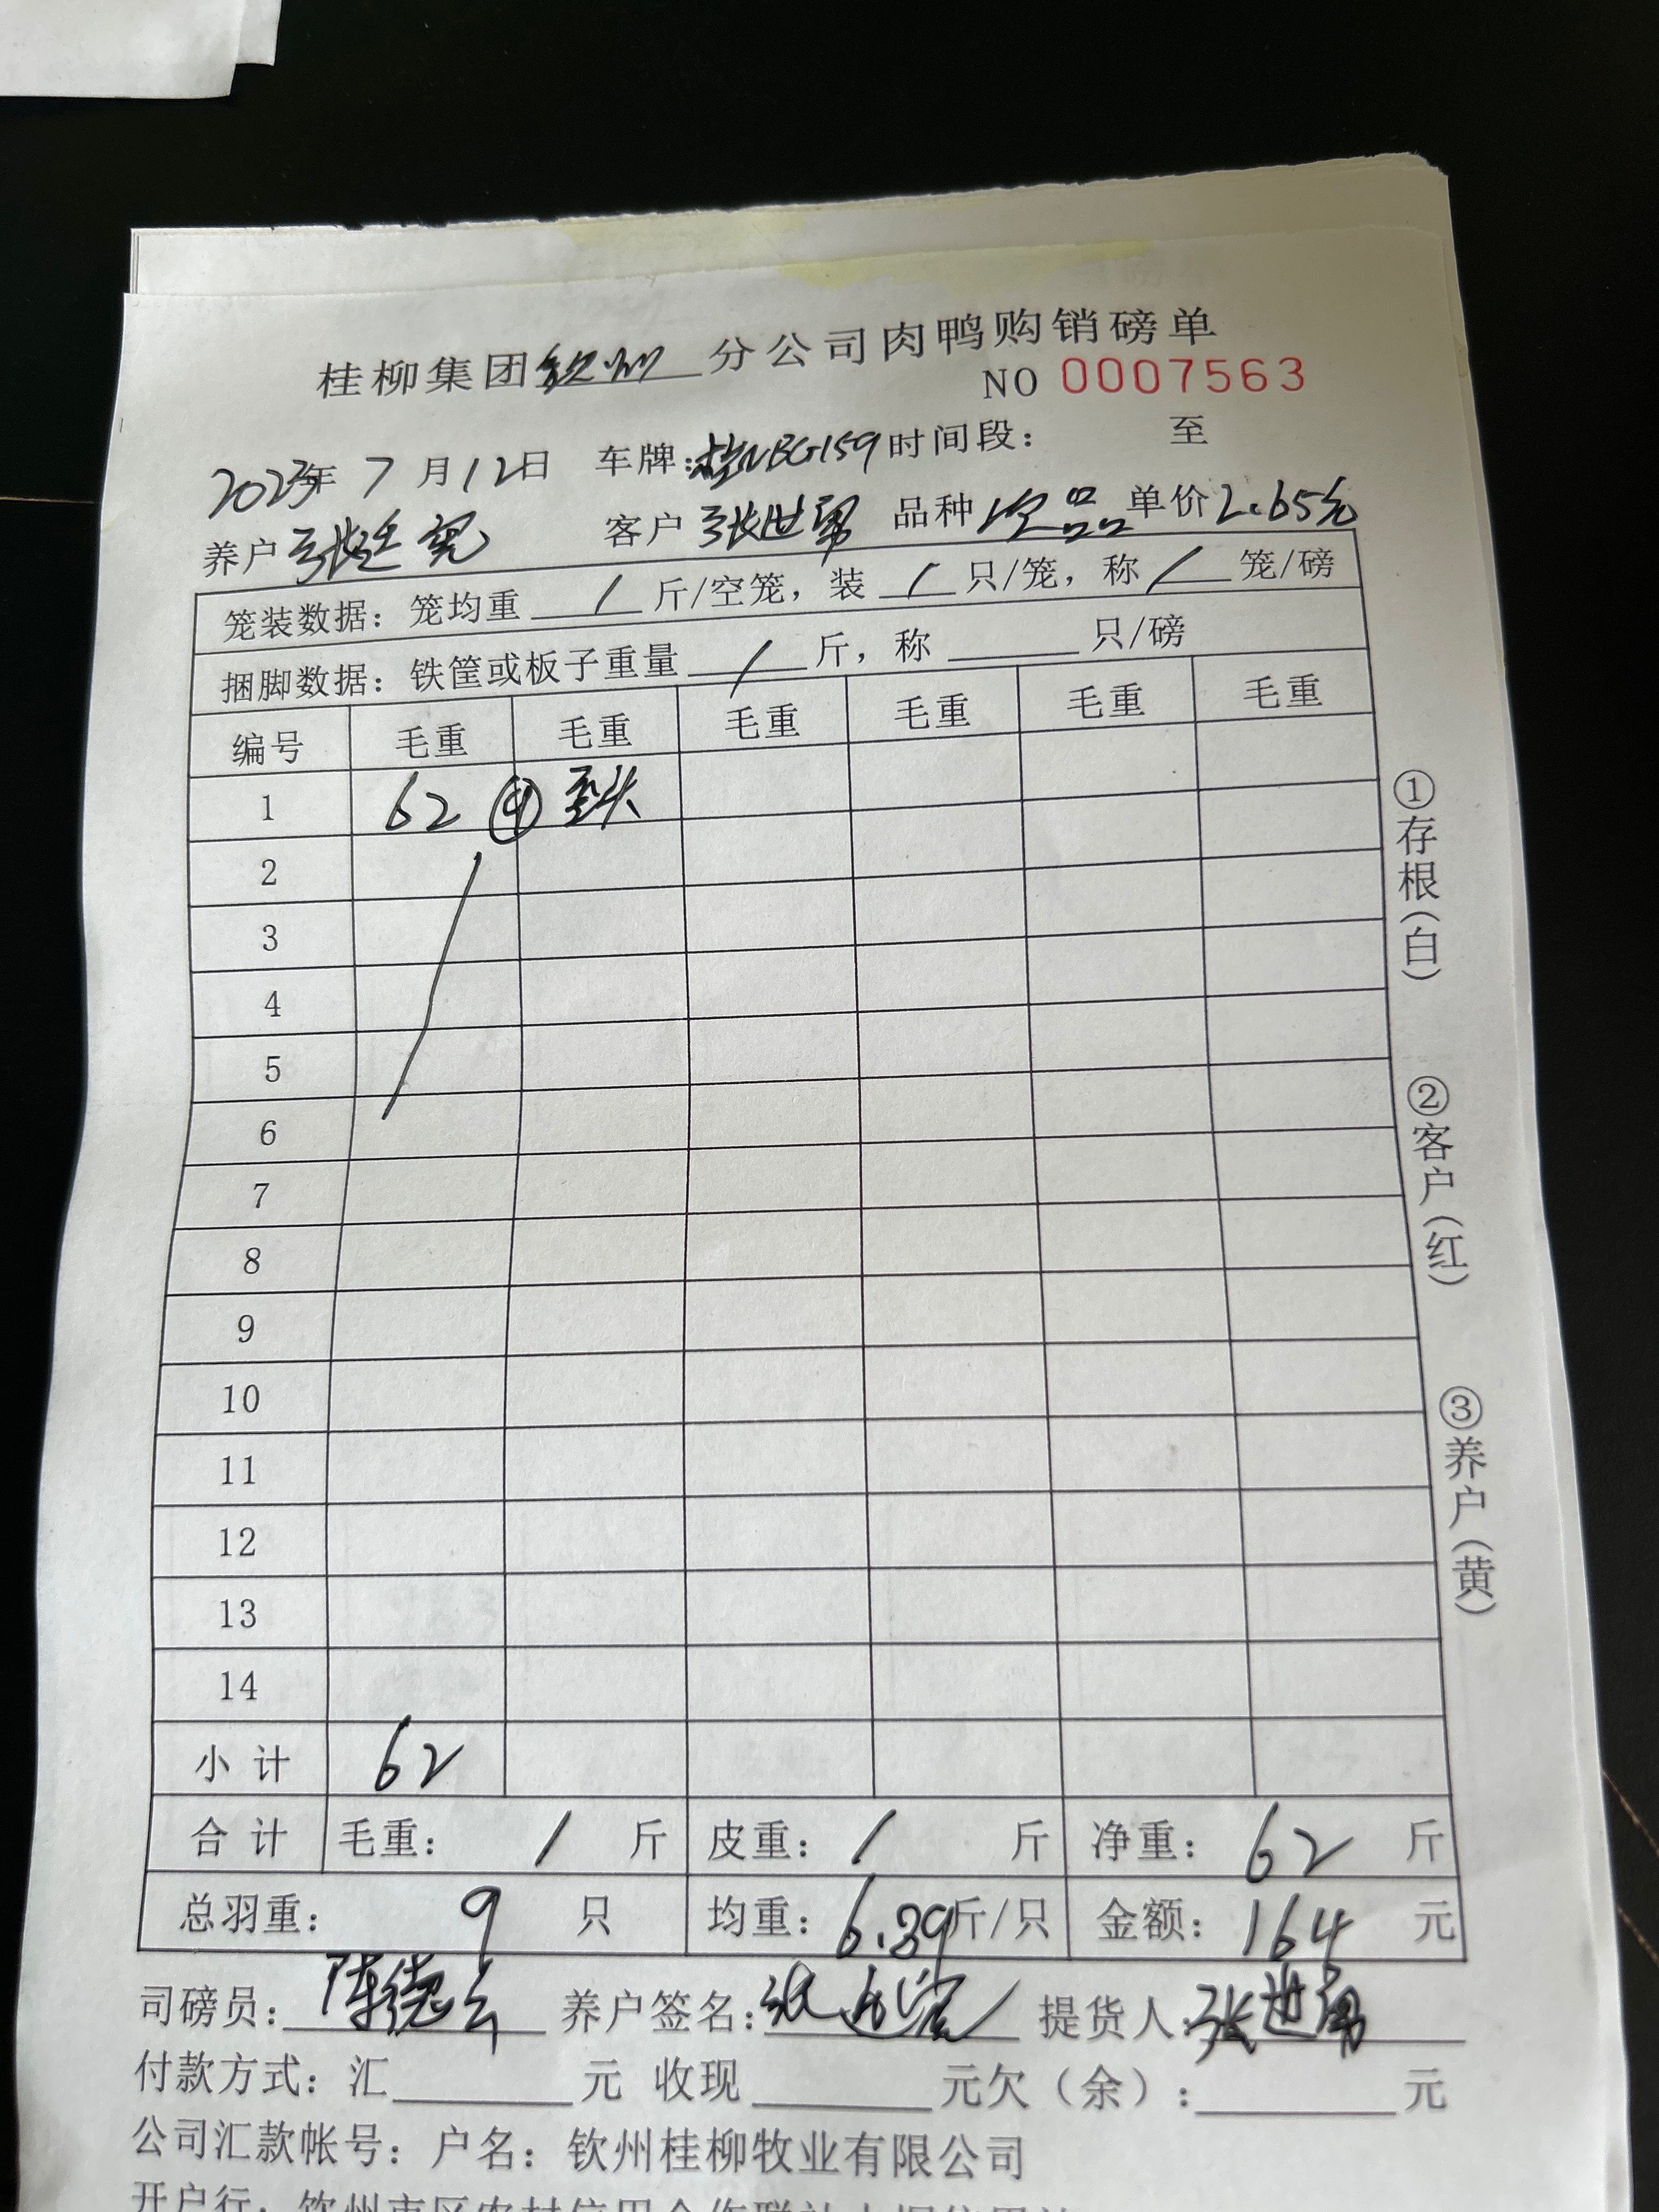 桂柳集团钦州分公司肉鸭购销磅单
NO 0007563
2023年 7 月 12 日 车牌:桂NBG159 时间段: 至
养户 张廷宪 客户 张世勇 品种 次品 单价 2.65元
笼装数据:笼均重 / 斤/空笼,装 / 只/笼,称 / 笼/磅
捆脚数据:铁筐或板子重量 / 斤,称 只/磅
编号 毛重 毛重 毛重 毛重 毛重 毛重
1 62 ⑨
2
3
4
5
6
7
8
9
10
11
12
13
14
小计 62
合计 毛重: / 斤 皮重: / 斤 净重: 62 斤
总羽重: 9 只 均重: 6.89斤/只 金额: 164 元
司磅员: 陈德云 养户签名: 提货人: 张世勇
付款方式:汇 元 收现 元欠(余): 元
公司汇款帐号:户名:钦州桂柳牧业有限公司
①存根(白)
②客户(红)
③养户(黄)